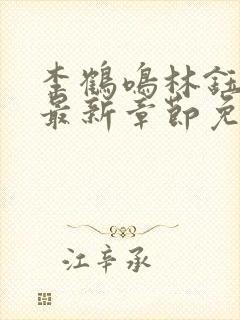 李鹤鸣林钰
最新章节免
江辛承